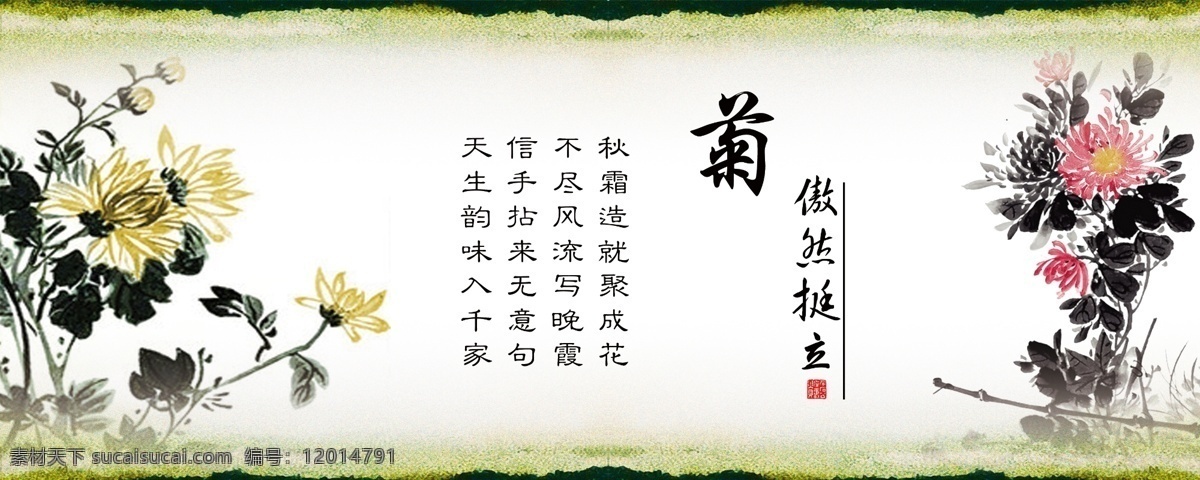 菊
傲然挺立
秋霜造就聚成花
不尽风流写晚霞
信手拈来无意句
天生韵味入千家
素材天下 sucaisucai.com 编号：12014791